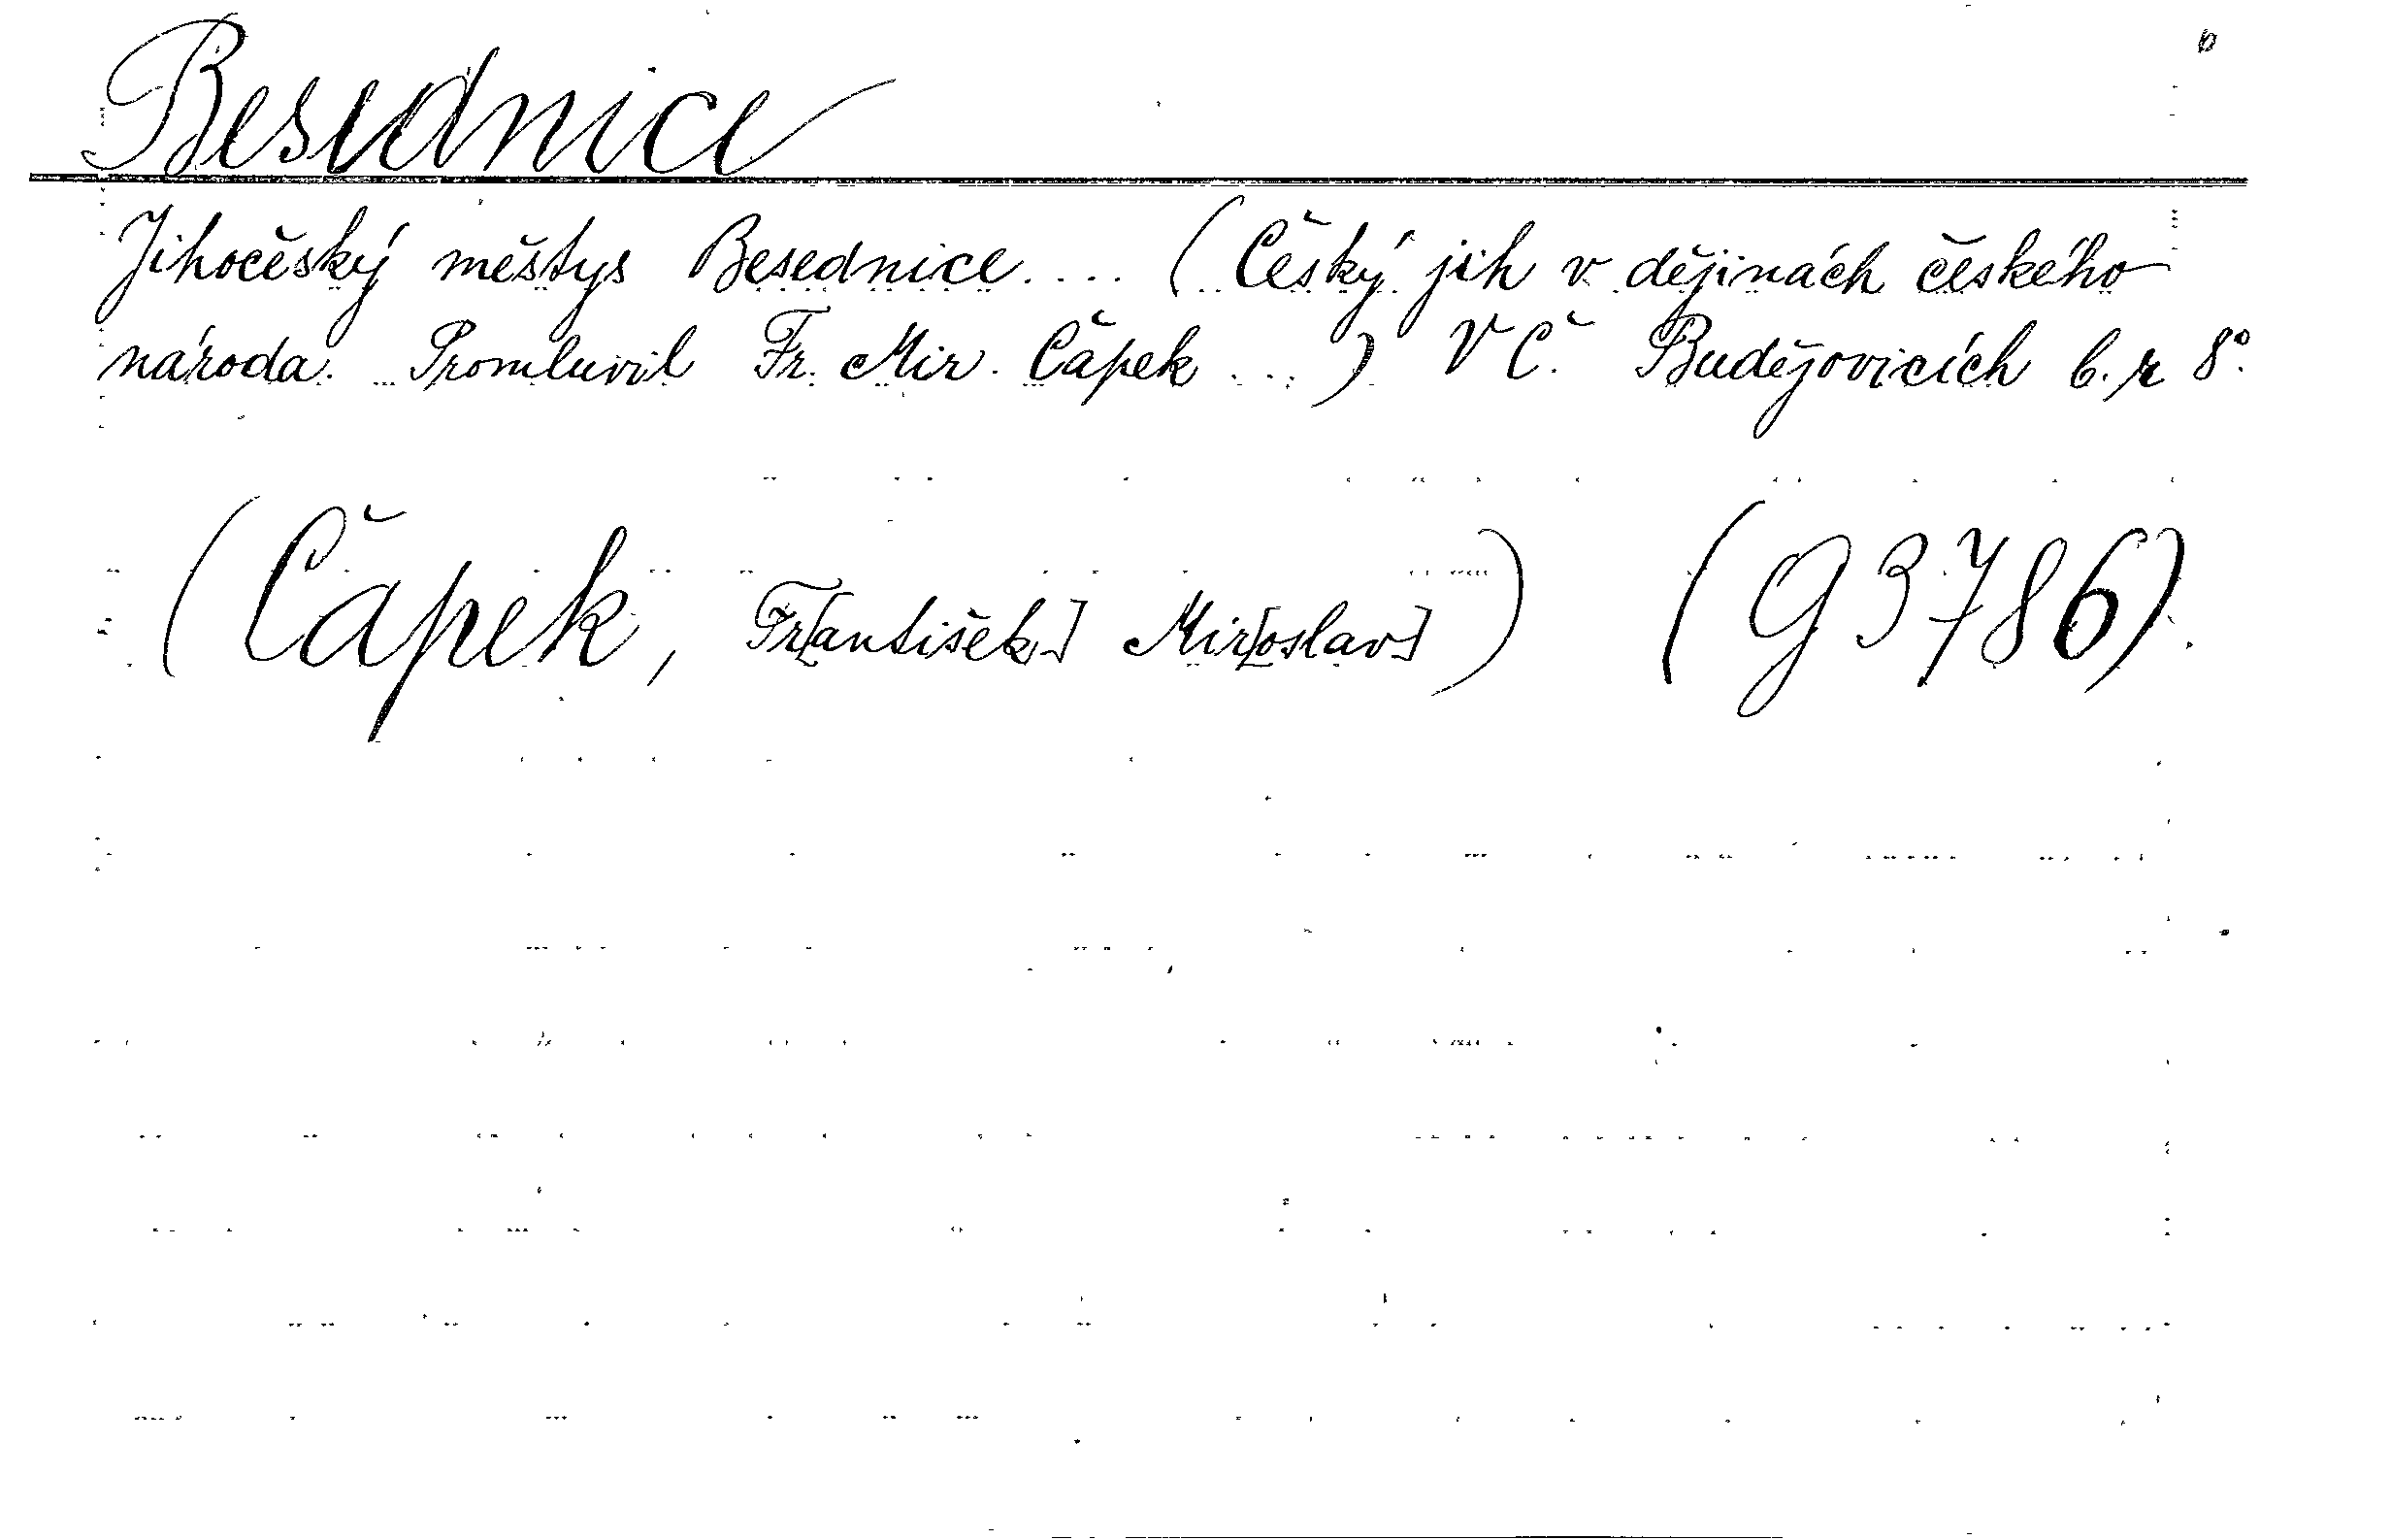 Besednice
Jihočeský městys Besednice.... (Český jih v dějinách českého
národa. Promluvil Fr. Mir. Čapek ...) V Č. Budějovicích b. r 8°.
(Čapek, Fr[antišek] Mir[oslav]) (G 3786).